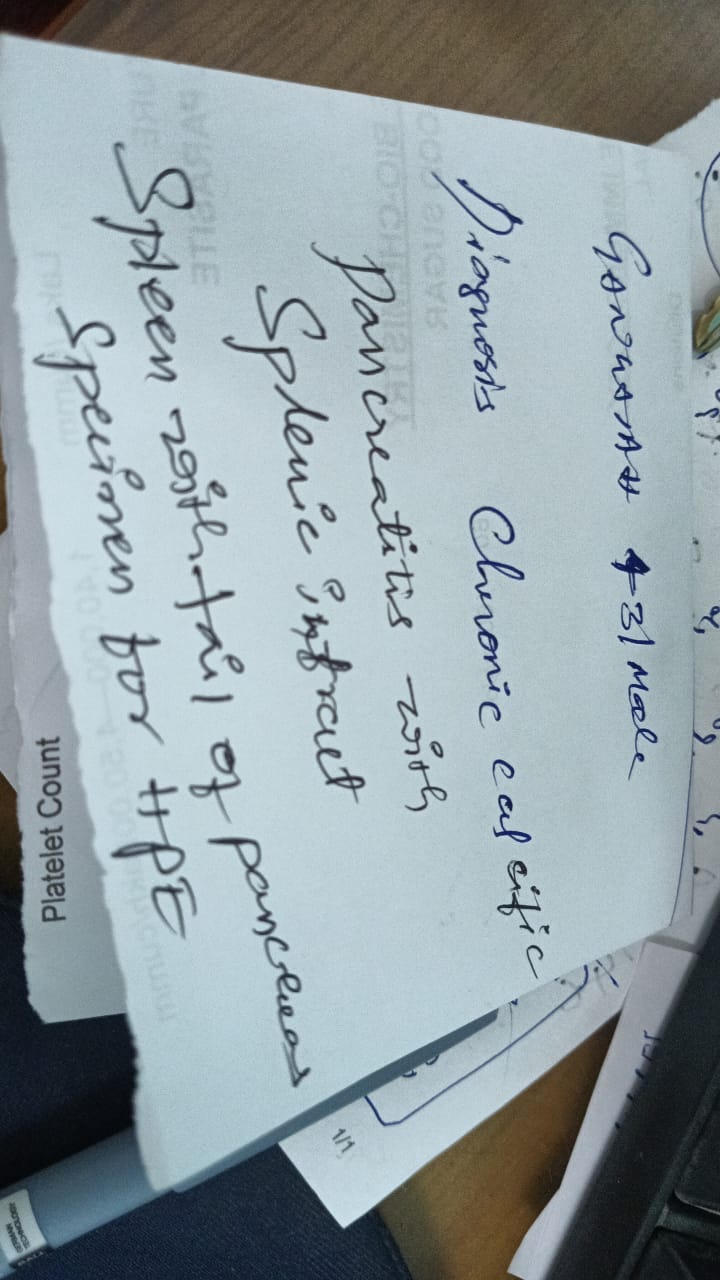 43/ Male
Diagnosis Chronic calcific
Pancreatitis with
Splenic infract
Spleen with tail of pancreas
Specimen for HPE
Platelet Count
1/1
GERMAN
TECHNOLOGY